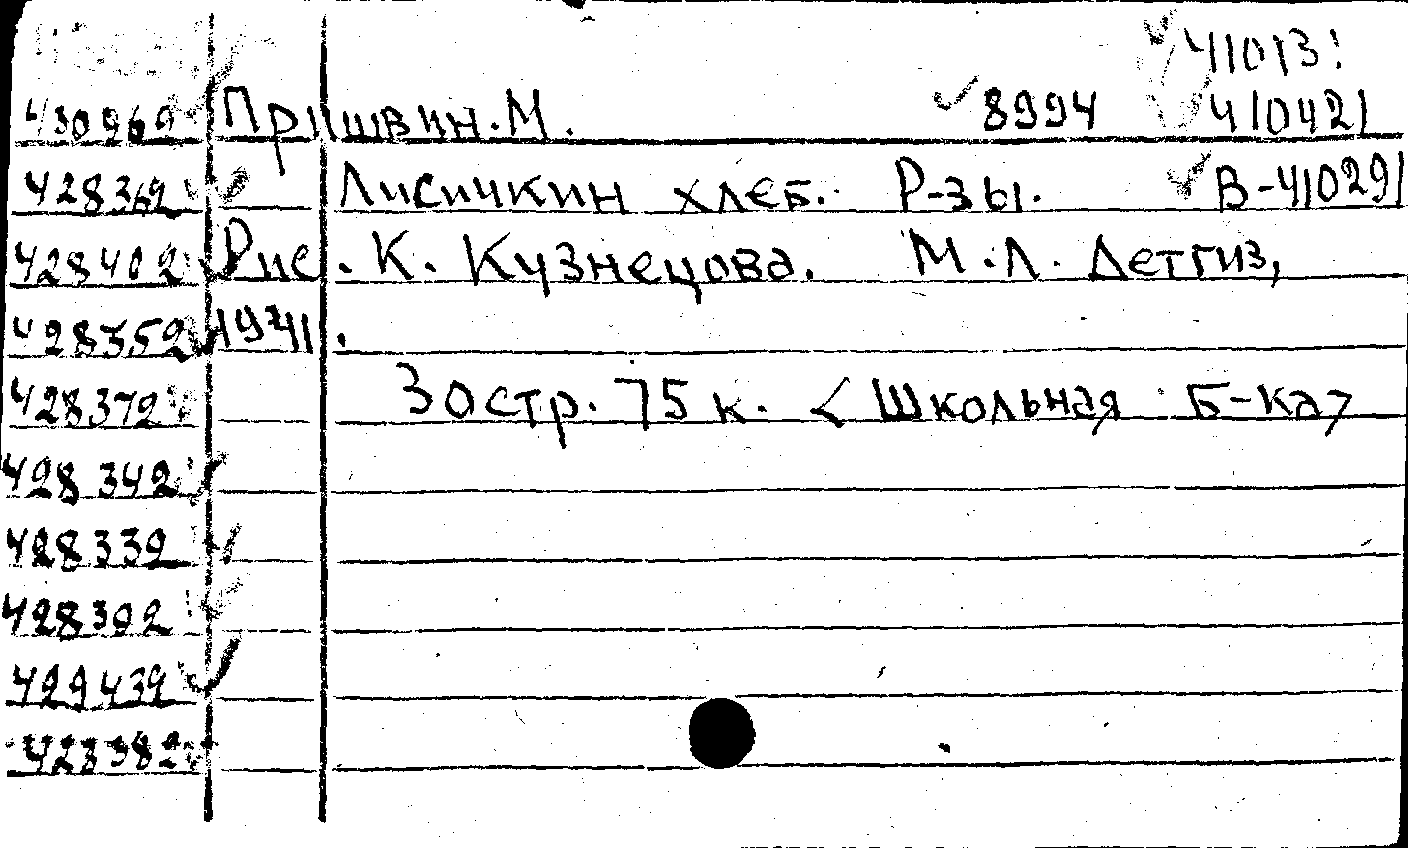 41013!
430969 Пришвин. М. 8994 410421
428369 Лисичкин хлеб. Р-зы. В-410291
428402 Рис. К. Кузнецова. М.Л. Детгиз,
428352 1941.
428372 30стр. 75 к. < Школьная Б-ка>
428342
428339
428392
429439
428382